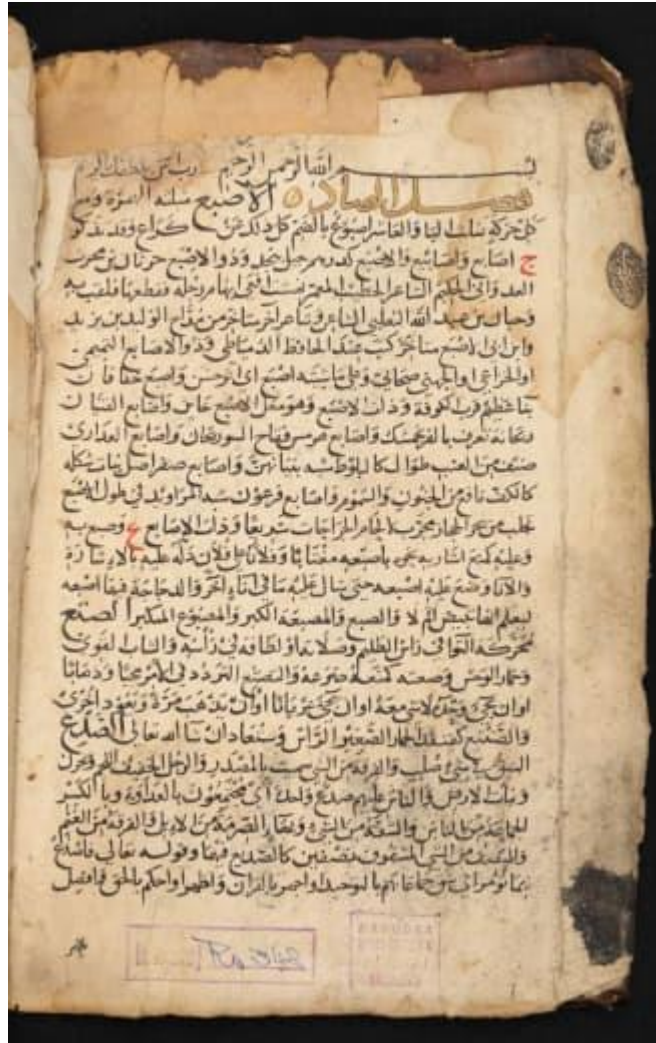 بسم الله الرحمن الرحيم رب
فصل الصاد ه الاصبع مثلثة الهمزة ومع
كل حركة تثلث الباء والعاشر اصبوع بالضم كل ذلك عن كراع وقد يذكر
ج اصابع واصابيع والاصبع كدرهم جبل بنجد وذو الاصبع حرثان بن محرث
العدواني الحكيم الشاعر الخطيب المعمر نهشت افعى ابهام رجله فقطعها فلقب به
وحيان بن عبد الله التغلبي الشاعر وشاعر آخر متاخر من مداح الوليد بن يزيد
وابن ابي الاصبع متاخر كتب عنه الحافظ الدمياطي وذو الاصابع التميمي
او الخزاعي او الجهني صحابي وعلى ماشيته اصبع اي اثر حسن واصبع خفان
بناء عظيم قرب الكوفة وذات الاصبع وهو مقل الاصبع خائن واصابع الفتيات
ريحانة تعرف بالفرنجمشك واصابع هرمس فقاح السورنجان واصابع العذارى
صنف من العنب طوال كالبلوط شبه ببنانهن واصابع صفر اصل نبات شكله
كالكف نافع من الجنون والسموم واصابع فرعون شبه المراويد في طول الاصبع
يجلب من بحر الحجاز مجرب الجام الجراحات سريعا وذات الاصابع ع وصبع به
وعليه كمنع اشار نحوه باصبعه مغتابا وفلانا على فلان دله عليه بالاشارة
والاناء وضع عليه اصبعه حتى سال عليه ما في اناء آخر والدجاجة فيها اصبعه
ليعلم انها تبيض ام لا والصبع والمصبعة الكبر والمصبوع المتكبر الصتع
محركة التواء في راس الظليم وصلابة او لطافة في رأسه والشاب القوي
وحمار الوحش وصتعه كمنعه صرعه والتصتع التردد في الامر مجيئا وذهابا
او ان يجيء وحده لا شيء معه او ان يجيء عريانا او ان يذهب مرة ويعود اخرى
والصنتع كقنفذ الحمار الصغير الراس وسيعاد ان شاء الله تعالى الصدع
الشق في شيء صلب والفرقة من الشيء سميت بالمصدر والرجل الخفيف اللحم ويحرك
ونبات الارض والناس عليهم صدع واحد اي مجتمعون بالعداوة وبالكسر
الجماعة من الناس والشقة من الشيء وبهاء الصرمة من الابل والفرقة من الغنم
والنصف من الشيء المشقوق نصفين كالصديع فيهما وقوله تعالى فاصدع
بما تؤمر اي شق جماعاتهم بالتوحيد او اجهر بالقران او اظهر او احكم بالحق وافصل
Ra 342